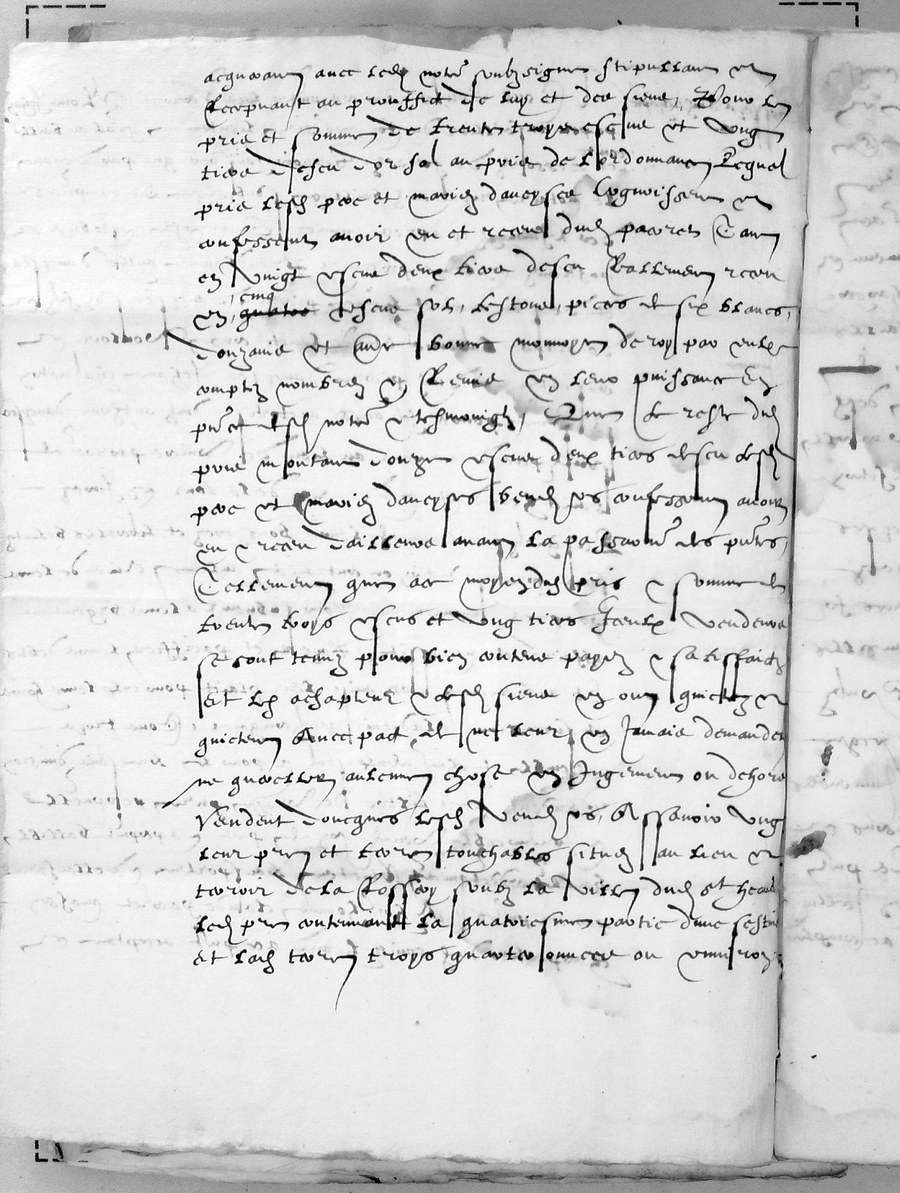 acquerant avec led notre soubzsigne stipullant et
Recepvant au prouffict de luy et des siens, Pour le
pris et somme de trente troys escus et ung
tiers d'escu d'or sol au pris de l'ordonnance Lequel
pris lesd pere et maries daneyses Cognoissent et
confessent avoir eu et receu dud pacoret Tant
en vingt escus deux tiers descu Reallement receu
en cinq escus sol, testons, pieces de six blancs,
Douzains et aultre bonne monnoye de roy par eulx
comptes nombres et Remis en leur puissance En
pnce desd notre et tesmoingz, Que le reste dud
pris montant douze escus deux tiers descu lesd
pere et maries daneyses vendrs confessent avoir
eu et receu dailleurs avant la passation des pntes,
Tellement que au moyen dud pris et somme de
trente troys escus et ung tiers Iceulx vendeurs
se sont tenuz pour bien contens payes et satisfaictz
Et led achapteur et lesd siens en ont quicte et
quictent Avec pact de ne leur en Jamais demander
ne quereller aulcune chose en Jugement ou dehors
Vendent doncques lesd vendrs, Assavoir ung
leur pre et terre touchables situes au lieu et
terroir de la Rossey soubz la ville dud St
led pre contenant la quatoriesme partie dune
Et lad terre troys quartes ou environ